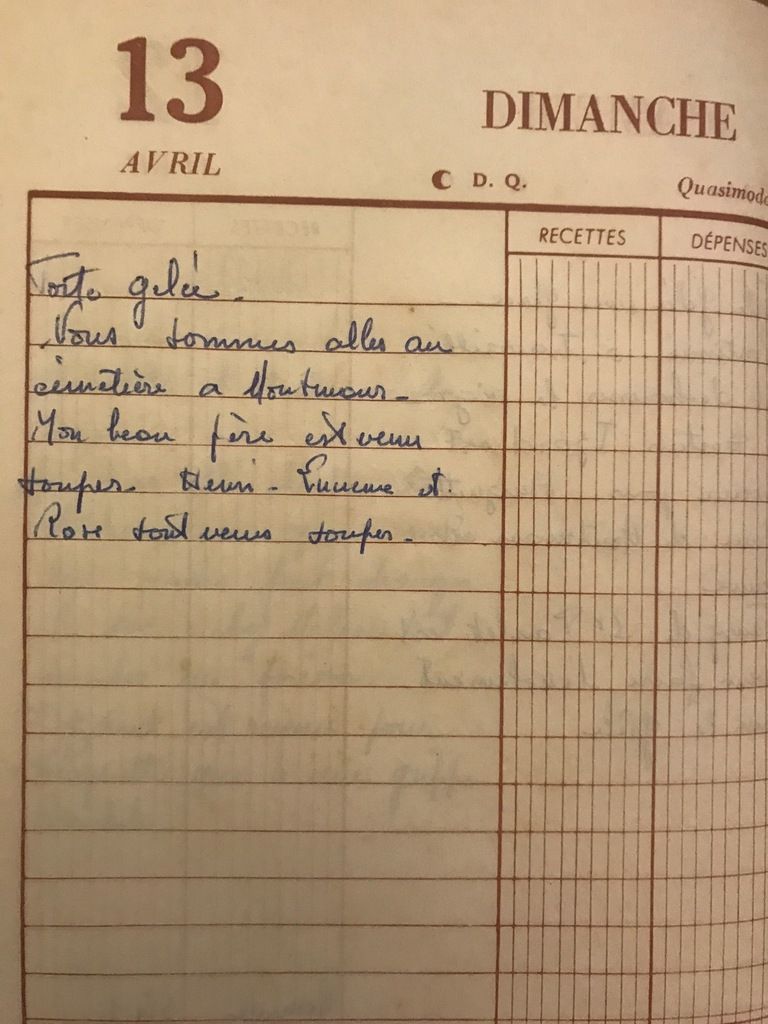 13
DIMANCHE
AVRIL
D. Q.
Quasimodo
RECETTES
DÉPENSES
Forte gelée.
Nous sommes allés au
cimetière a Montmaur-
Mon beau père est venu
souper. Henri - et
Rose sont venus souper.